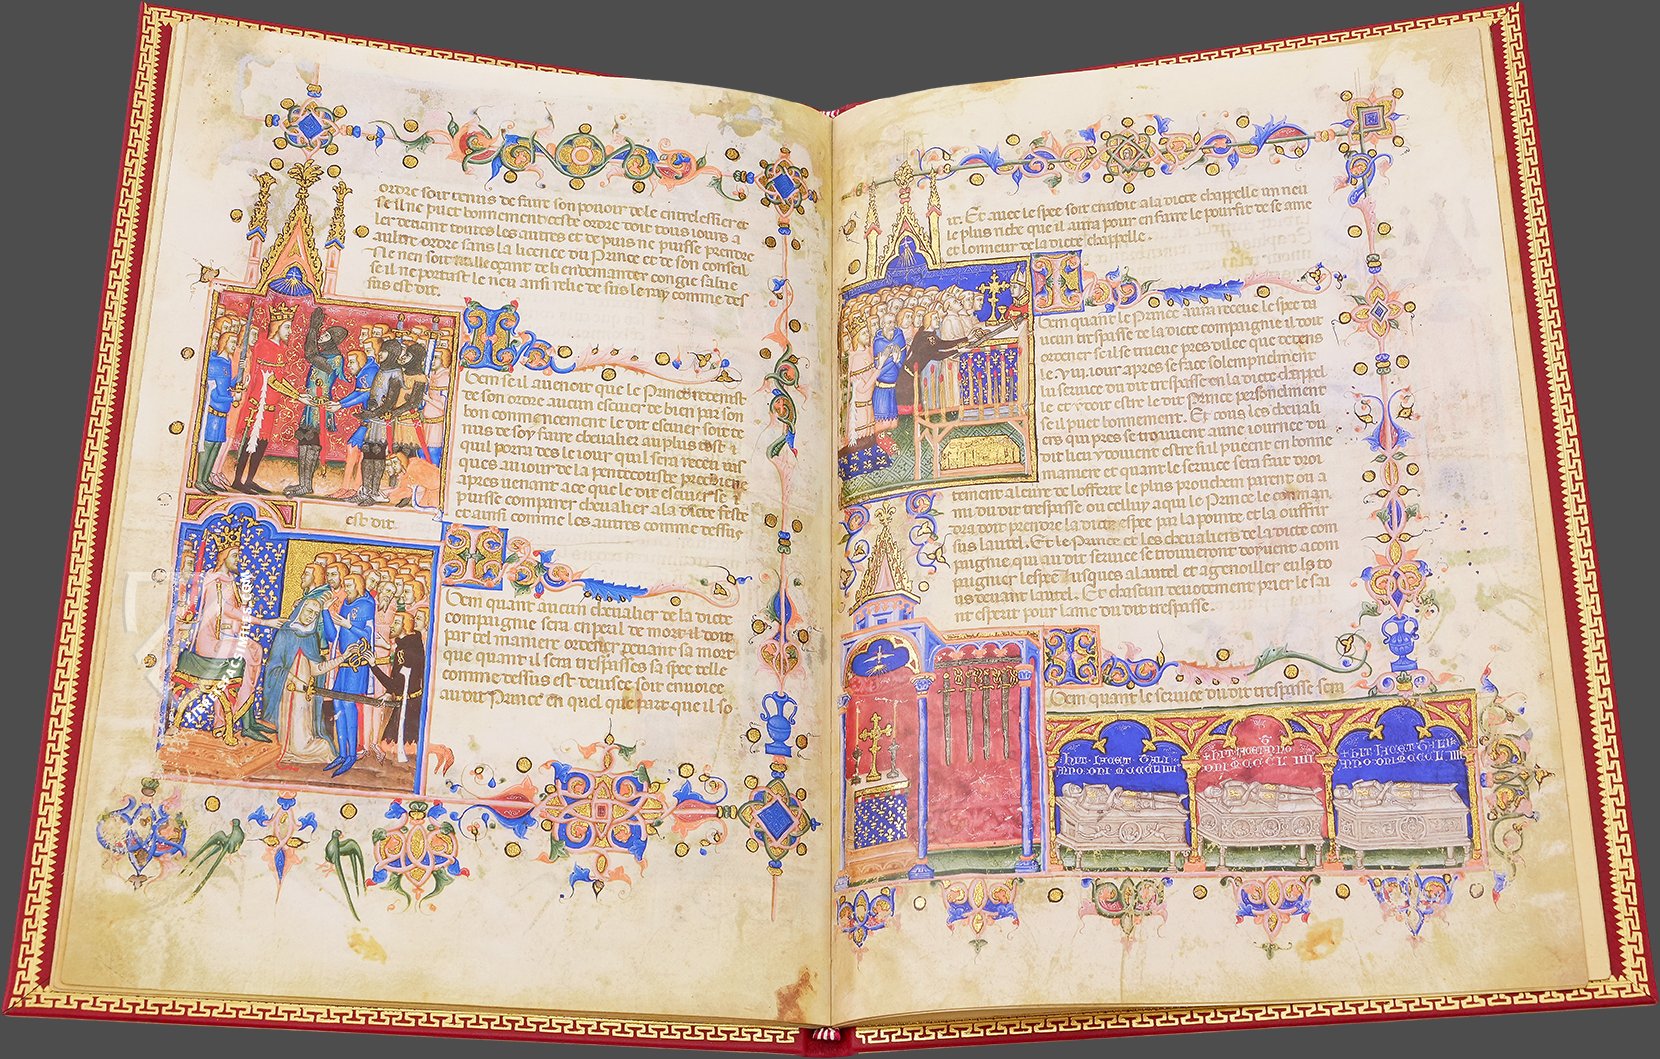 ordre soit tenus de faire son pouoir de le entrelessier et
se il ne puet bonnement ceste ordre doit tous iours a
ler deuant toutes les autres et depuis ne puisse prendre
aultre ordre sans la licence du Prince et de son conseil
se il ne portast le neu ansi relie de sus le ray comme des
sus est dit.
Item se il auenoit que le Prince receuist
de son ordre aucun escuier de bien par son
bon commencement le dit escuier soit te
nus de soy faire cheualier au plus tost
quil porra des le iour quil sera receu ius
ques au iour de la pentecouste prochiene
apres uenant a ce que le dit escuier se
puisse comparer cheualier a la dicte feste
et ansi comme les autres comme dessus
est dit.
Item quant aucun cheualier de la dicte
compaignie sera en peril de mort il doit
par tel maniere ordener deuant sa mort
que quant il sera trespasses sa spee telle
comme dessus est deuisee soit enuoiee
au dit Prince en quel que part que il so
it. Et auec le spee soit enuoie a la dicte chappelle un neu
le plus riche que il aura pour en faire le pourfit de se ame
et lonneur de la dicte chappelle.
Item quant le Prince aura receue le spee da
ucun trespasse de la dicte compaignie il doit
ordener se il se trueue pres d'ilec que dedens
le .viii. iour apres se face solempnelment
lu seruice du dit trespasse en la dicte chappel
le et y doit estre le dit Prince personelment
se il puet bonnement. Et tous les cheuali
ers qui pres se trouuent a une iournee du
dit lieu y douuent estre sil puuent en bonne
maniere et quant le seruice sera fait droi
tement a leure de lofferte le plus prouchem parent ou a
mi du dit trespasse ou celluy a qui le Prince le conman
dra doit prendre la dicte espee par la pointe et la ouffrir
sus lautel. Et le Prince et les cheualiers de la dicte com
paignie qui au dit seruice se trouueront doyuent acom
paignier lespee iusques a lautel et agenoiller euls to
us deuant lautel. Et chascun deuotement prier le sai
nt esperit pour lame du dit trespasse.
Item quant le seruice du dit trespasse sera